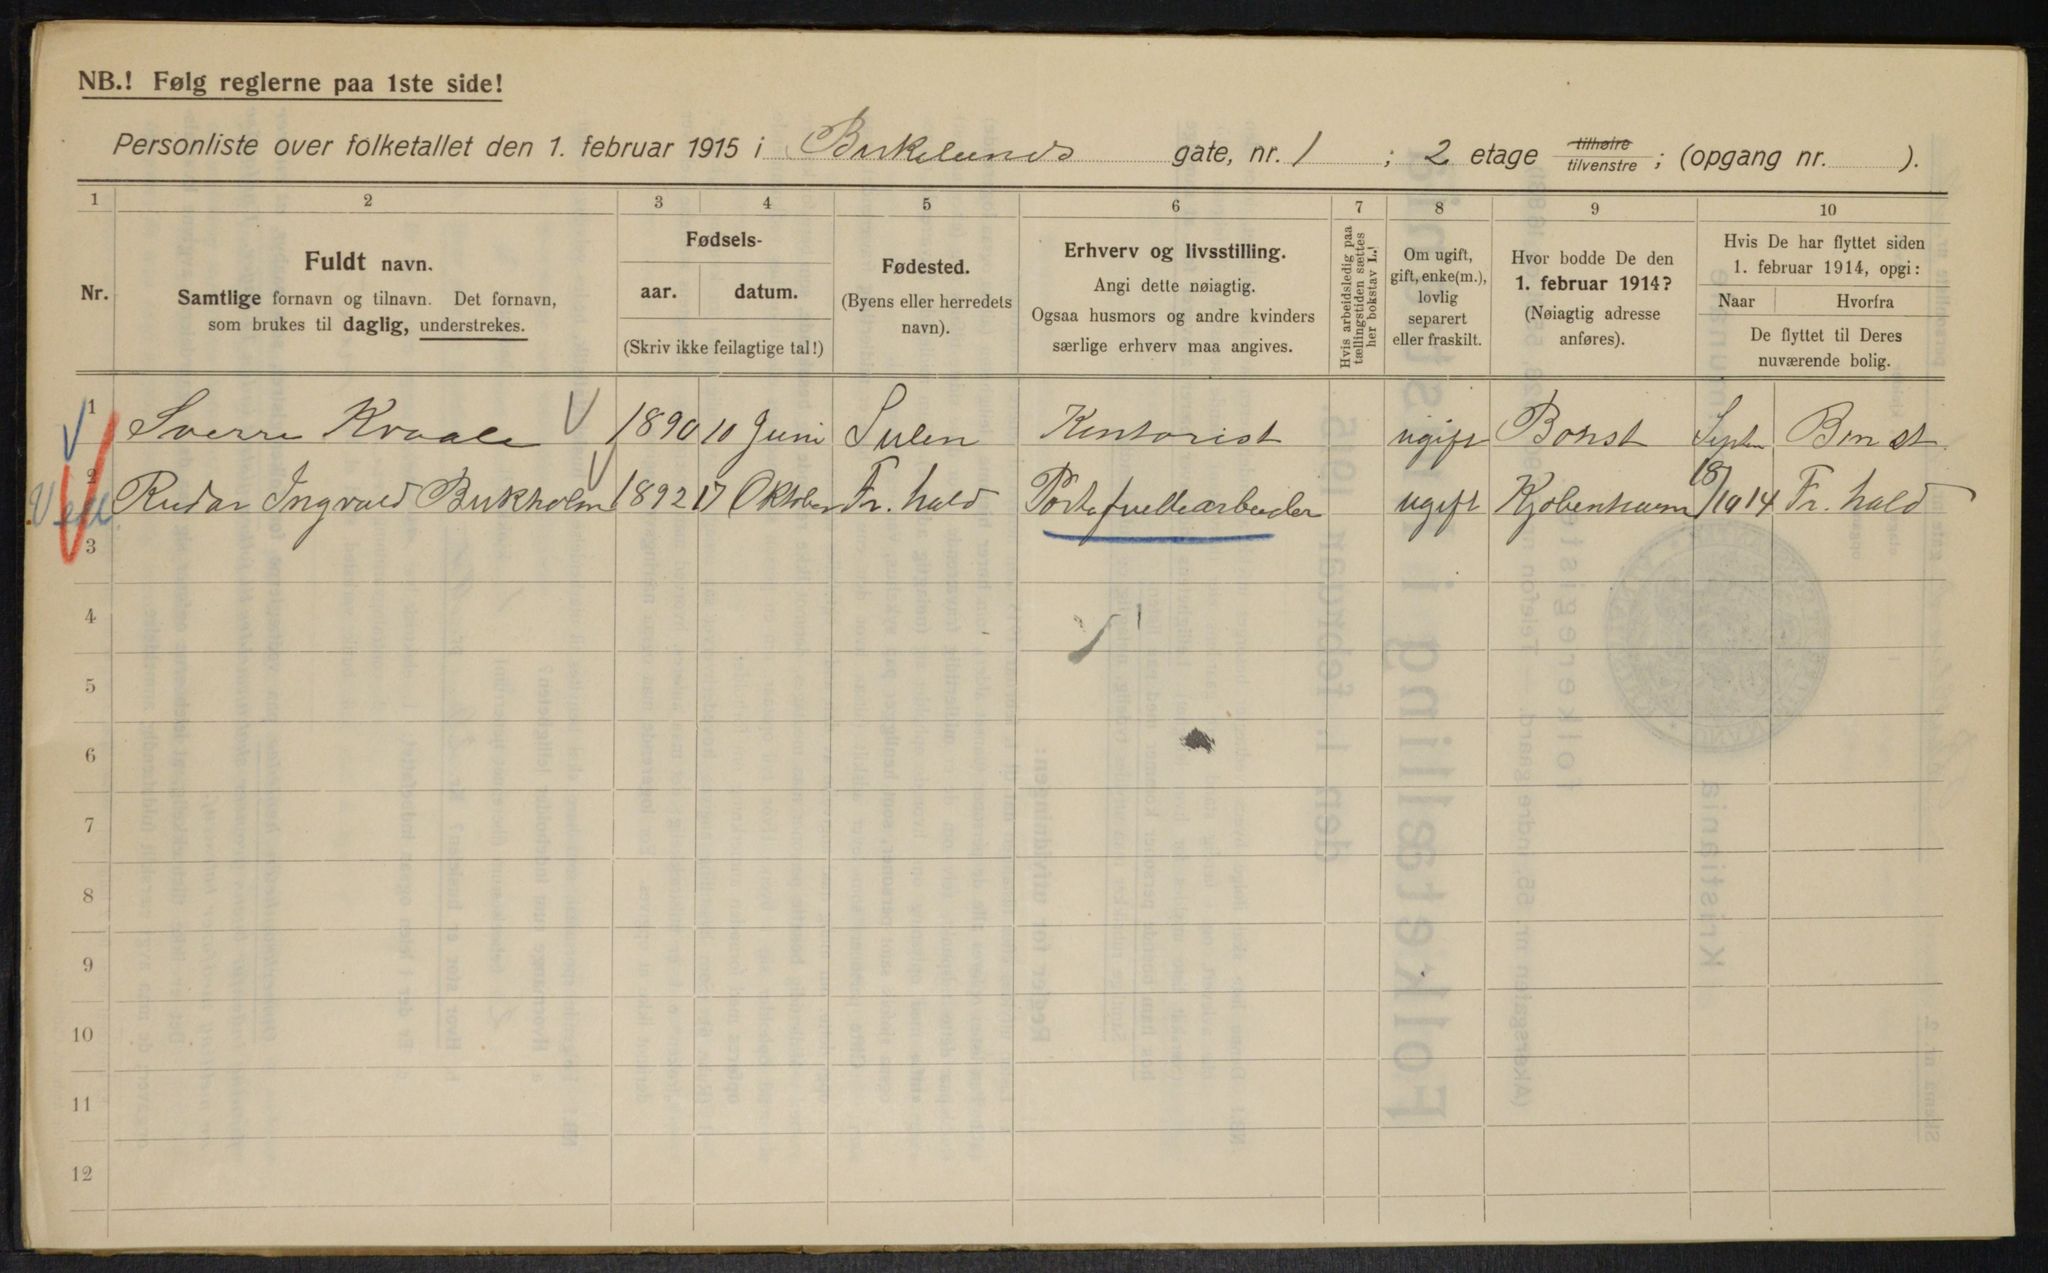 NB.! Følg reglerne paa 1ste side!
Personliste over folketallet den 1. februar 1915 i Birkelunds gate, nr. 1 ; 2 etage tilhøire tilvenstre ; (opgang nr. ).
1 2 3 4 5 6 7 8 9 10
Nr.
Fuldt navn.
Samtlige fornavn og tilnavn. Det fornavn,
som brukes til daglig, understrekes.
Fødsels-
aar. datum.
(Skriv ikke feilagtige tal!)
Fødested.
(Byens eller herredets
navn).
Erhverv og livsstilling.
Angi dette nøiagtig.
Ogsaa husmors og andre kvinders
særlige erhverv maa angives.
Hvis arbeidsledig paa
tællingstiden sættes
her bokstav L.!
Om ugift,
gift, enke(m.),
lovlig
separert
eller fraskilt.
Hvor bodde De den
1. februar 1914?
(Nøiagtig adresse
anføres).
Hvis De har flyttet siden
1. februar 1914, opgi:
Naar Hvorfra
De flyttet til Deres
nuværende bolig.
1 Sverre Kvaale 1890 10 Juni Sulen Kontorist ugift Septbr
2 Rudar Ingvald Birkholm 1892 17 Oktober Fr. hald Portefuellearbeider ugift Kjøbenhavn 18/10 14 Fr. hald
3
4
5
6
7
8
9
10
11
12